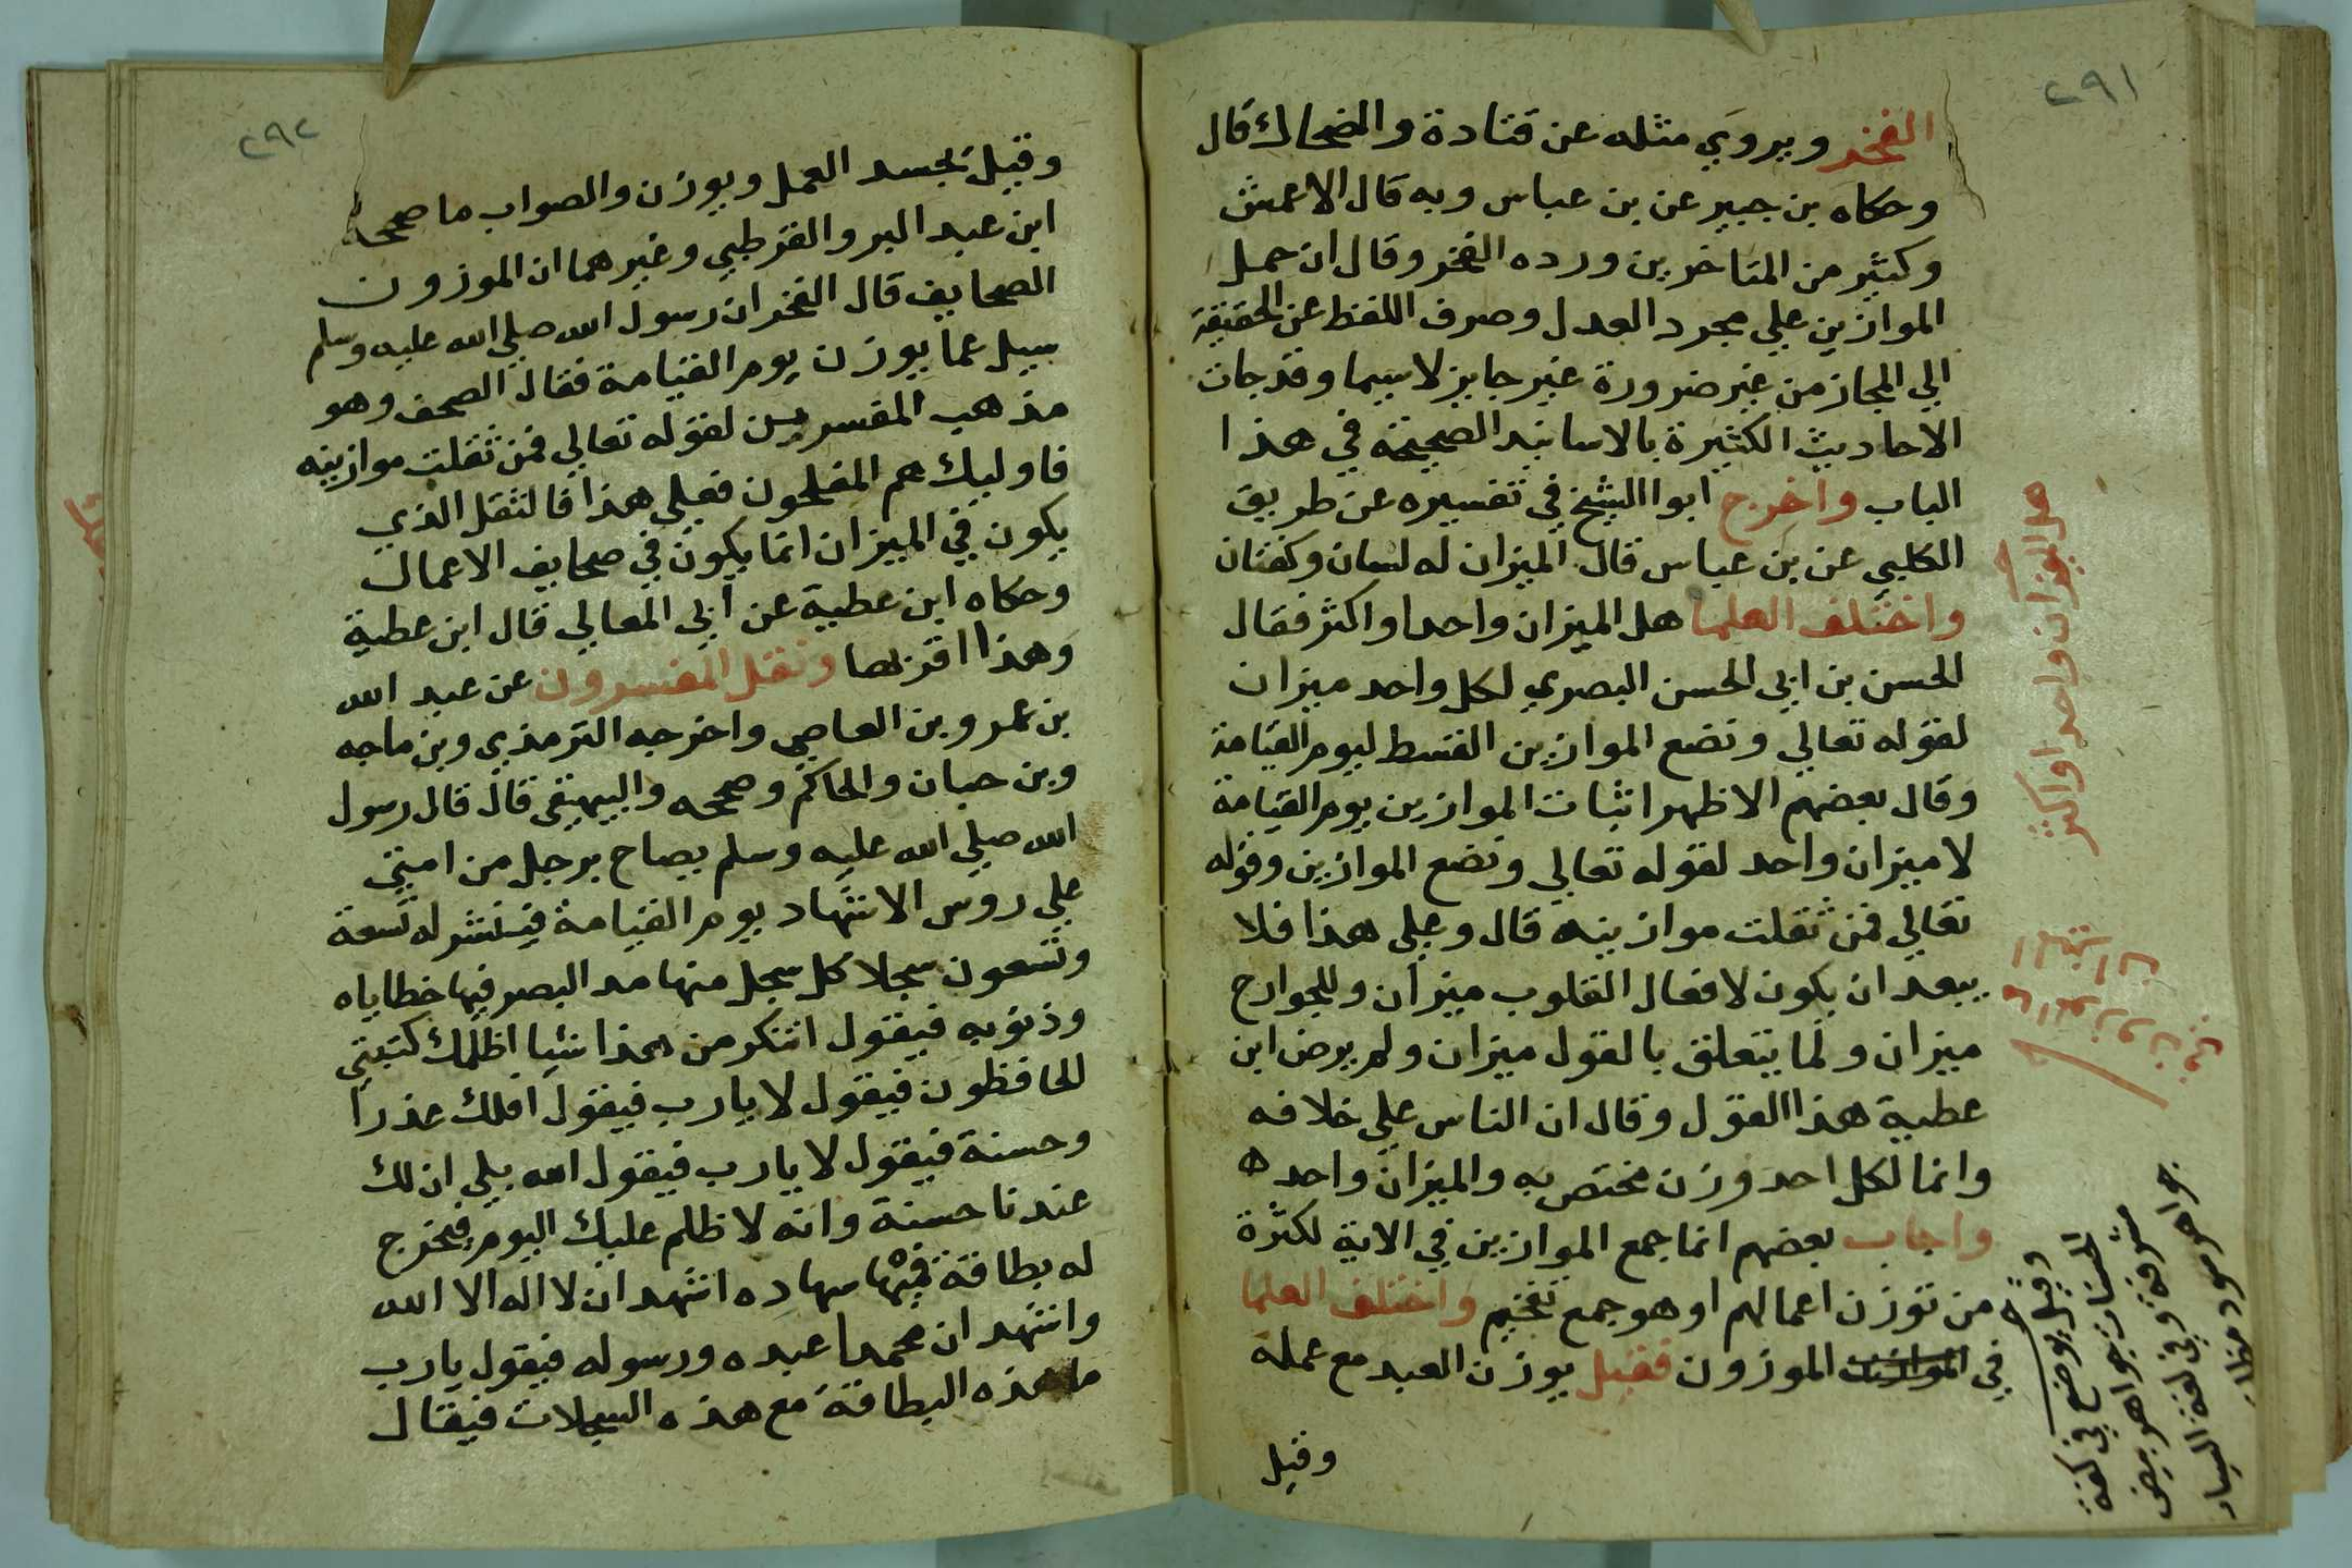 ٢٩١
الفخر ويروي مثله عن قتادة والضحاك قال
وحكاه بن جبير عن بن عباس وبه قال الاعمش
وكثير من المتاخرين ورده الفخر وقال ان حمل
الموازين علي مجرد العدل وصرف اللفظ عن الحقيقة
الي المجاز من غير ضرورة غير جايز لاسيما وقد جات
الاحاديث الكثيرة بالاسانيد الصحيحة في هذا
الباب واخرج ابوا الشيخ في تفسيره عن طريق
الكلبي عن بن عباس قال الميزان له لسان وكفتان
واختلف العلما هل الميزان واحد او اكثر فقال
الحسن بن ابي الحسن البصري لكل واحد ميزان
لقوله تعالي ونضع الموازين القسط ليوم القيامة
وقال بعضهم الاظهر اثبات الموازين يوم القيامة
لا ميزان واحد لقوله تعالي ونضع الموازين وقوله
تعالي فمن ثقلت موازينه قال وعلي هذا فلا
يبعد ان يكون لافعال القلوب ميزان وللجوارح
ميزان ولما يتعلق بالقول ميزان ولم يرض ابن
عطية هذا القول وقال ان الناس علي خلافه
وانما لكل احد وزن مختص به والميزان واحد ه
واجاب بعضهم انما جمع الموازين في الاية لكثرة
من توزن اعمالهم او هو جمع تفخيم واختلف العلما
في الموزون فقيل يوزن العبد مع عمله
وقيل
هل الميزان واحد او اكثر
وقيل يوضع في كفة
الحسنات جواهر بيض
مشرقة وفي كفة السيات
جواهر سود مظلمة
٢٩٢
وقيل يجسد العمل ويوزن والصواب ما صححه
ابن عبد البر والقرطبي وغيرهما ان الموزون
الصحايف قال الفخر ان رسول الله صلي الله عليه وسلم
سيل عما يوزن يوم القيامة فقال الصحف وهو
مذهب المفسرين لقوله تعالي فمن ثقلت موازينه
فاوليك هم المفلحون فعلي هذا فالثقل الذي
يكون في الميزان انما يكون في صحايف الاعمال
وحكاه ابن عطية عن ابي المعالي قال ابن عطية
وهذا اقربها ونقل المفسرون عن عبد الله
بن عمرو بن العاصي واخرجه الترمذي وبن ماجه
وبن حبان والحاكم وصححه والبيهقي قال قال رسول
الله صلي الله عليه وسلم يصاح برجل من امتي
علي روس الاشهاد يوم القيامة فينشر له تسعة
وتسعون سجلا كل سجل منها مد البصر فيها خطاياه
وذنوبه فيقول اتنكر من هذا شيا اظلمك كتبتي
الحافظون فيقول لا يارب فيقول افلك عذرا
وحسنة فيقول لا يارب فيقول الله بلي ان لك
عندنا حسنة وانه لا ظلم عليك اليوم فتخرج
له بطاقة فيها سهاده اشهد ان لا اله الا الله
واشهد ان محمدا عبده ورسوله فيقول يارب
ما هذه البطاقة مع هذه السجلات فيقال